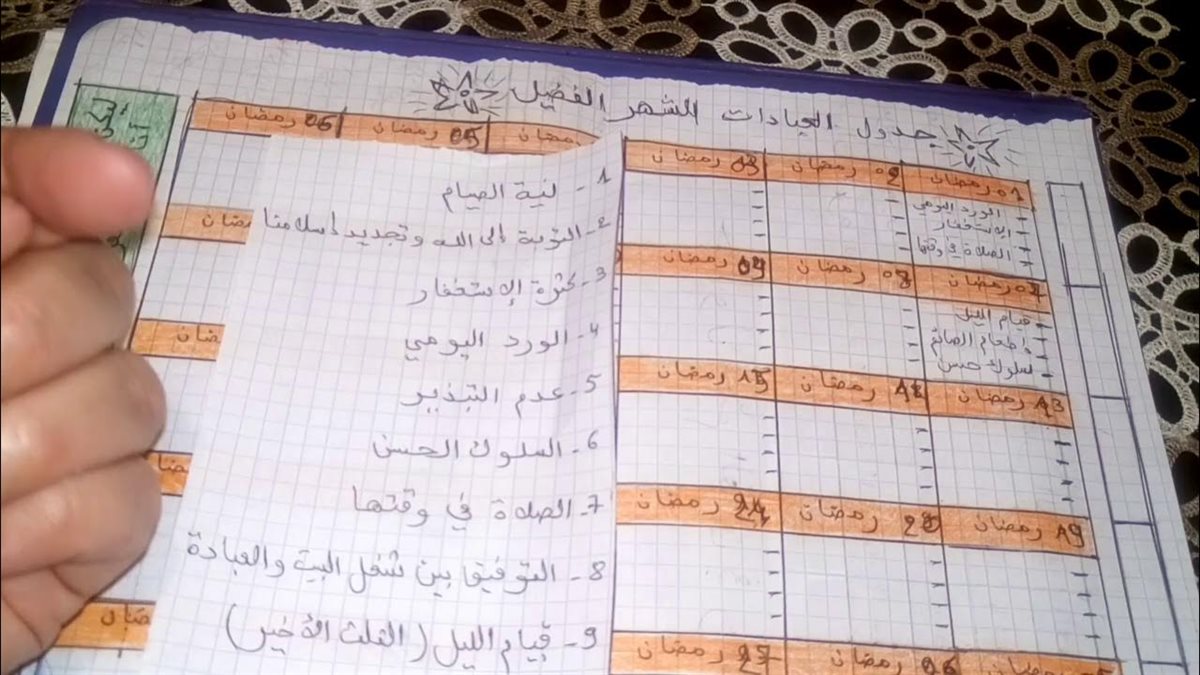 جدول العبادات للشهر الفضيل
01 رمضان
02 رمضان
03 رمضان
رمضان
05 رمضان
06 رمضان
- الورد اليومي
- الإستغفار
- الصلاة في وقتها
رمضان
08 رمضان
09 رمضان
- قيام الليل
- إطعام الصائم
- سلوك حسن
13 رمضان
رمضان
15 رمضان
19 رمضان
20 رمضان
21 رمضان
رمضان
26 رمضان
27 رمضان
1- نية الصيام
2- التوبة إلى الله وتجديد إسلامنا
3- كثرة الإستغفار
4- الورد اليومي
5- عدم التبذير
6- السلوك الحسن
7- الصلاة في وقتها
8- التوفيق بين شغل البيت والعبادة
9- قيام الليل (الثلث الأخير)